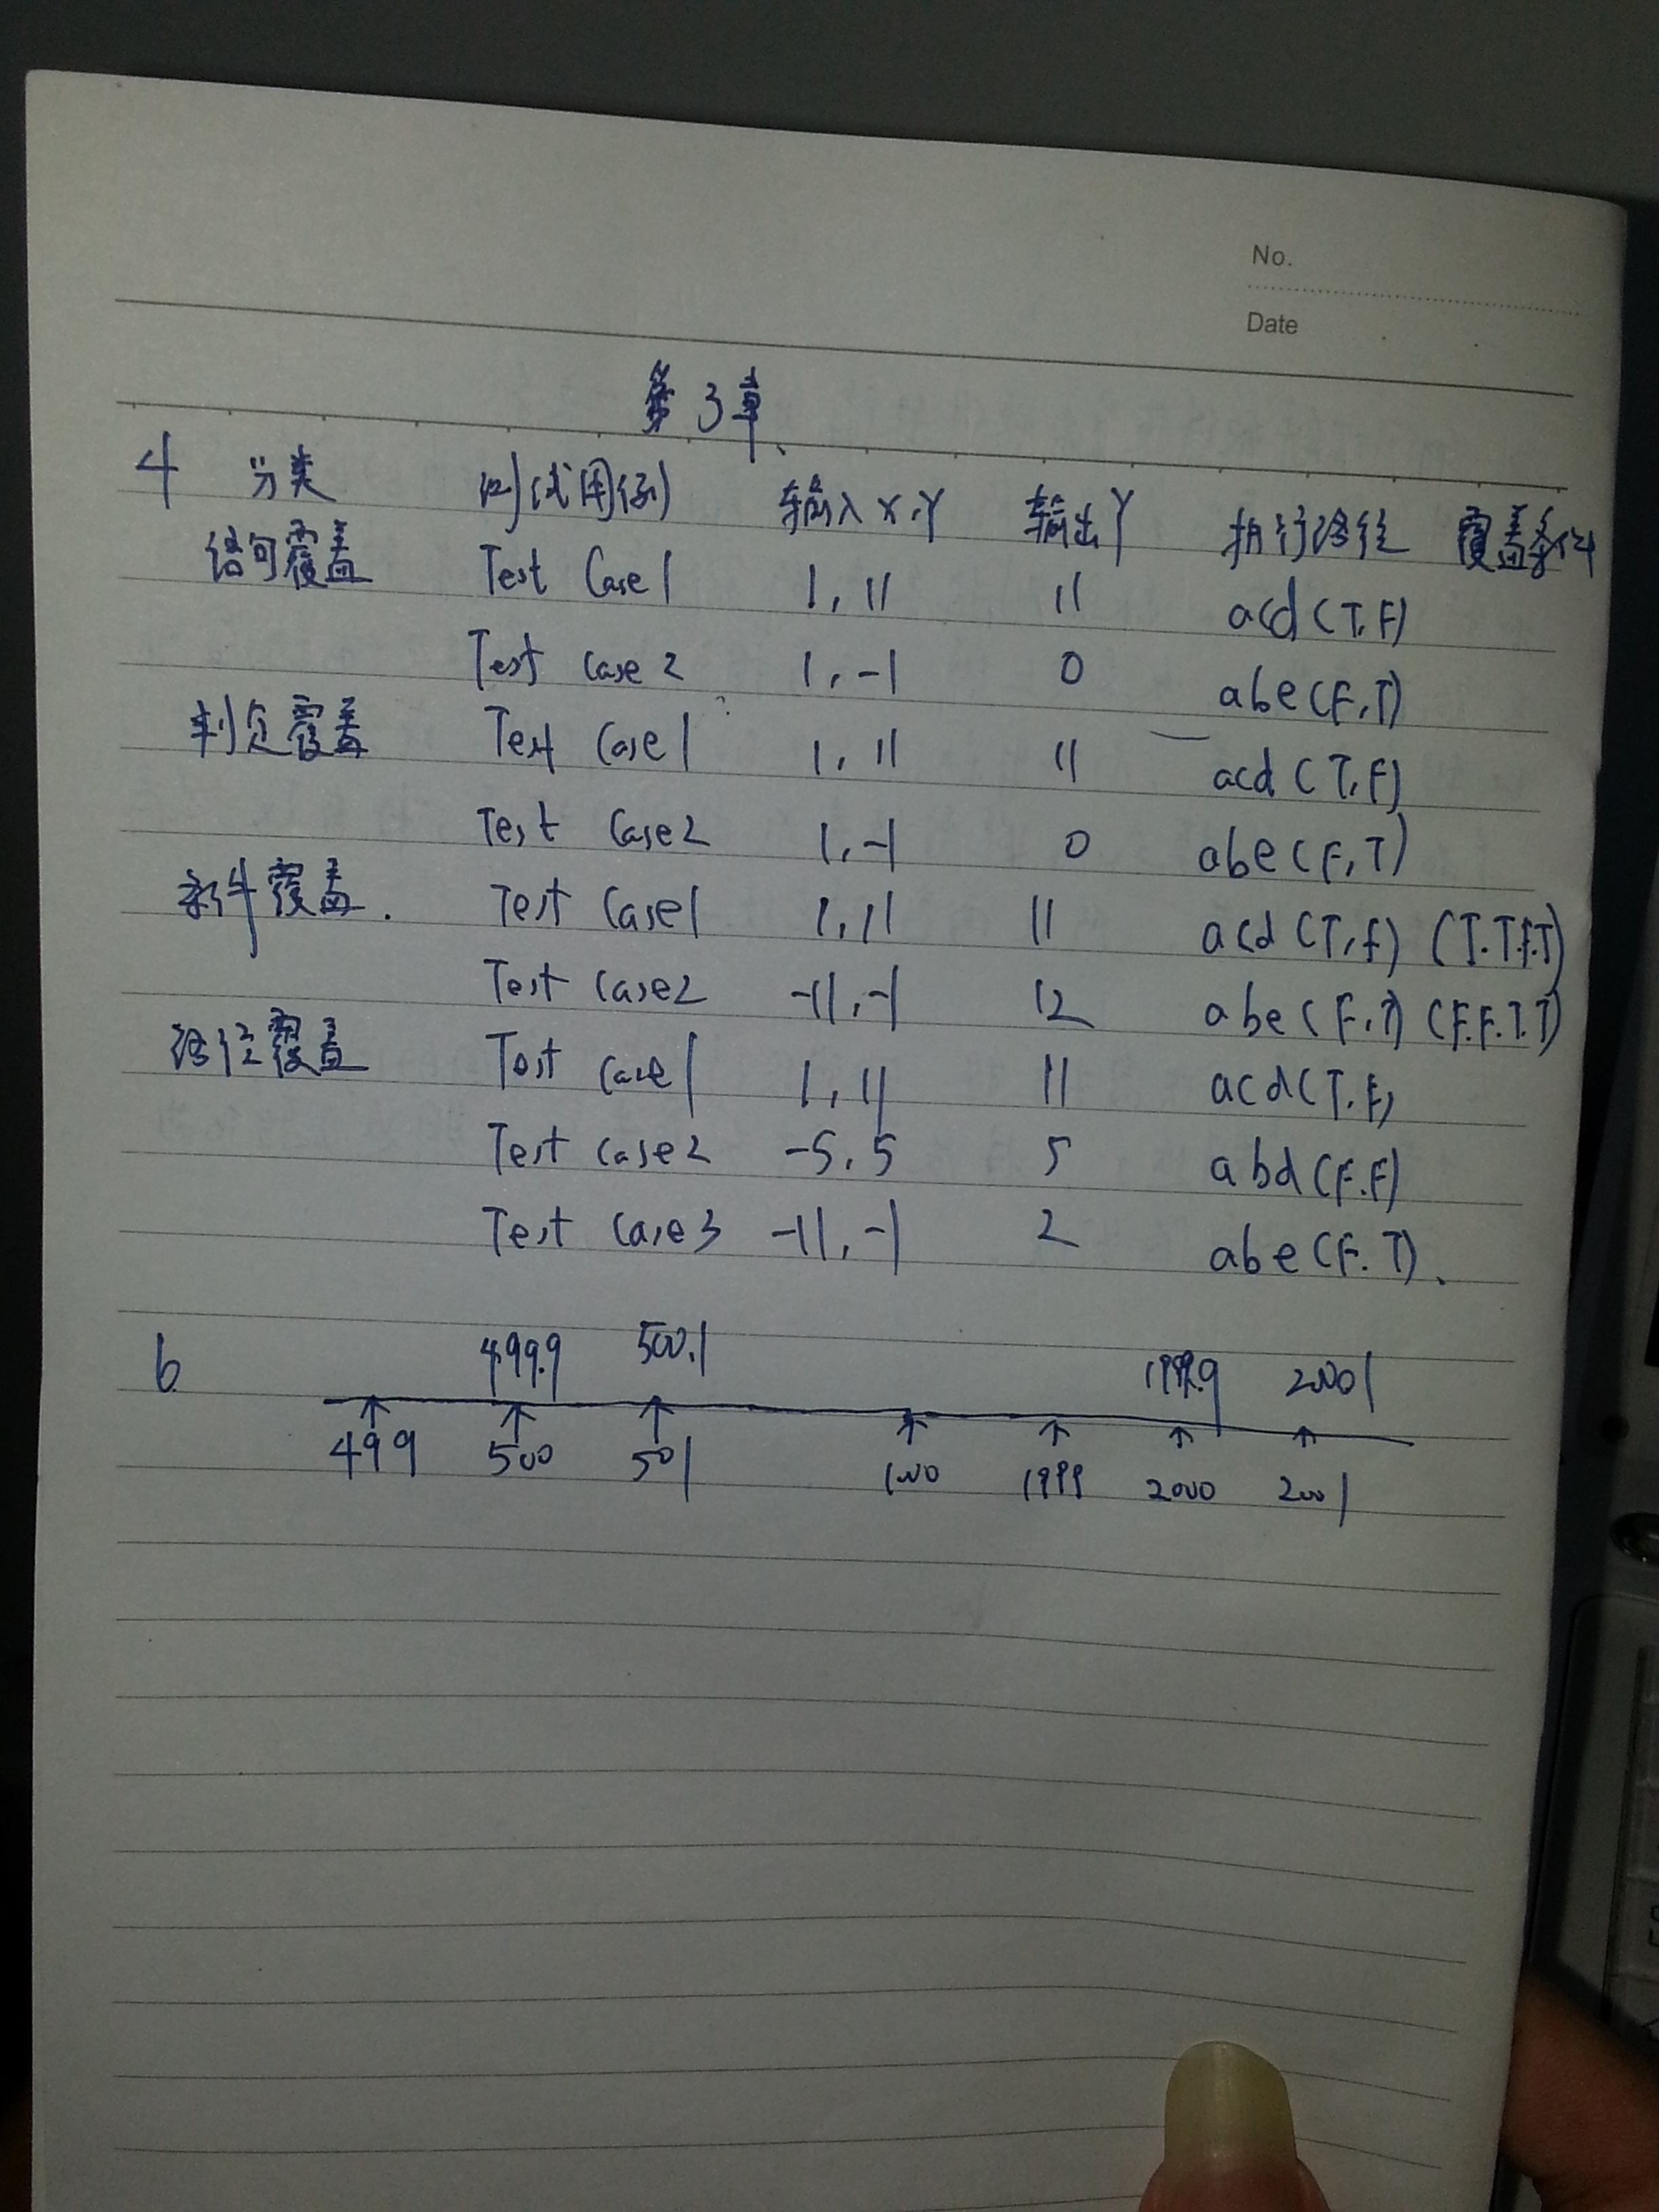 No.
Date
第3章
4 分类 测试用例 输入X,Y 输出Y 执行路径 覆盖条件
语句覆盖 Test Case1 1, 11 11 acd(T,F)
Test Case2 1, -1 0 abe(F,T)
判定覆盖 Test Case1 1, 11 11 acd(T,F)
Test Case2 1, -1 0 abe(F,T)
条件覆盖. Test Case1 1, 11 11 acd(T,F) (T.T.F.T)
Test Case2 -11, -1 12 abe(F,T) (F.F.T.T)
路径覆盖 Test Case1 1, 11 11 acd(T,F)
Test Case2 -5, 5 5 abd(F.F)
Test Case3 -11, -1 2 abe(F.T).
6 499.9 500.1 1999.9 2000.1
499 500 501 1000 1999 2000 2001